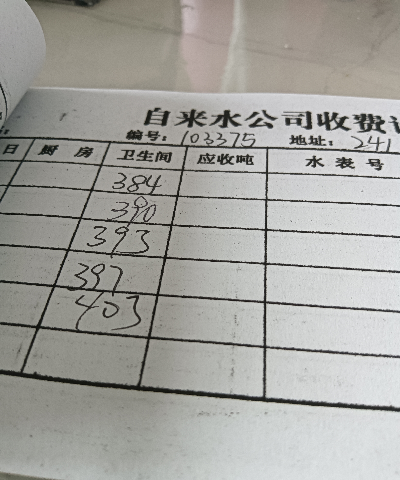 自来水公司收费
编号: 103375 地址: 241
日 厨房 卫生间 应收吨 水表号
384
390
393
397
403